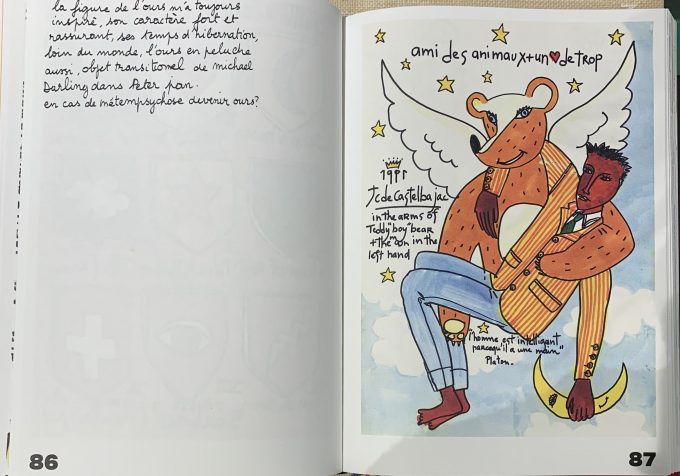 la figure de l'ours m'a toujours
inspiré, son caractère fort et
rassurant, ses temps d'hibernation,
loin du monde, l'ours en peluche
aussi, objet transitionnel de michael
Darling dans Peter pan.
en cas de métempsychose devenir ours?
86
ami des animaux+un❤de trop
1981
Jc de Castelbajac
in the arms of
Teddy"boy"bear
+the moon in the
left hand
"l'homme est intelligent
parcequ'il a une main"
Platon.
87